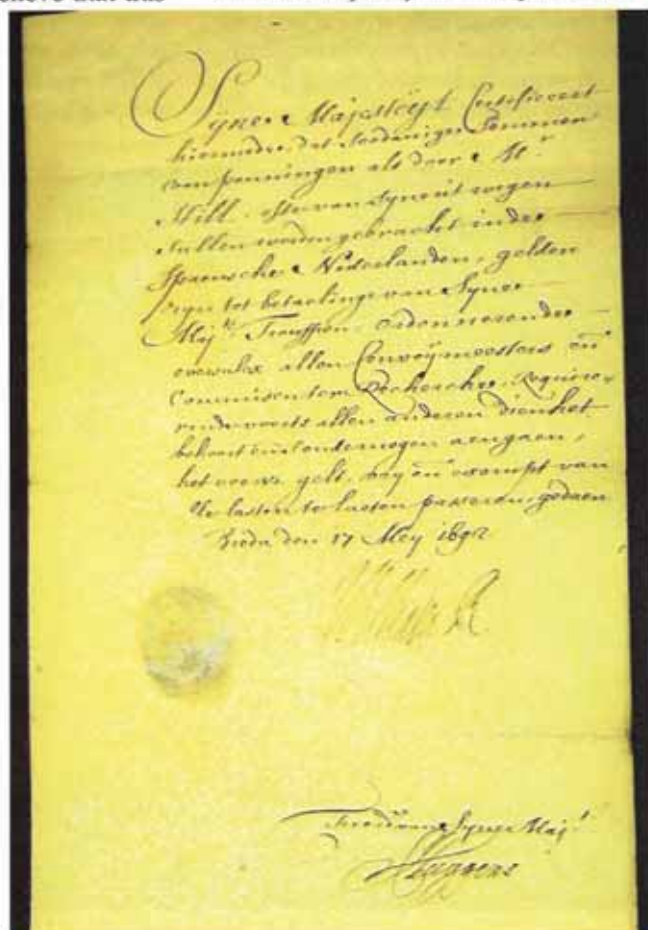 Syne Majesteyt Certificeert
hiermede, dat soodanige Sommen
van penningen als door Mr.
Hill, ofte van Synent wegen
sullen worden gebracht in de
Spaensche Nederlanden, gelden
zyn tot betaelinge van Syne
Majts. Trouppen, ordonnerende
oversulx allen Convoymeesters en
Commisen ter Recherche, require-
rende voorts allen anderen dien het
behoort ende soude mogen aengaen,
het voorsz. gelt, vry en exempt van
de lasten te laeten passeren, gedaen
Breda den 17 Mey 1692
William R
Ter Ordtie van Syne Majt.
Huygens